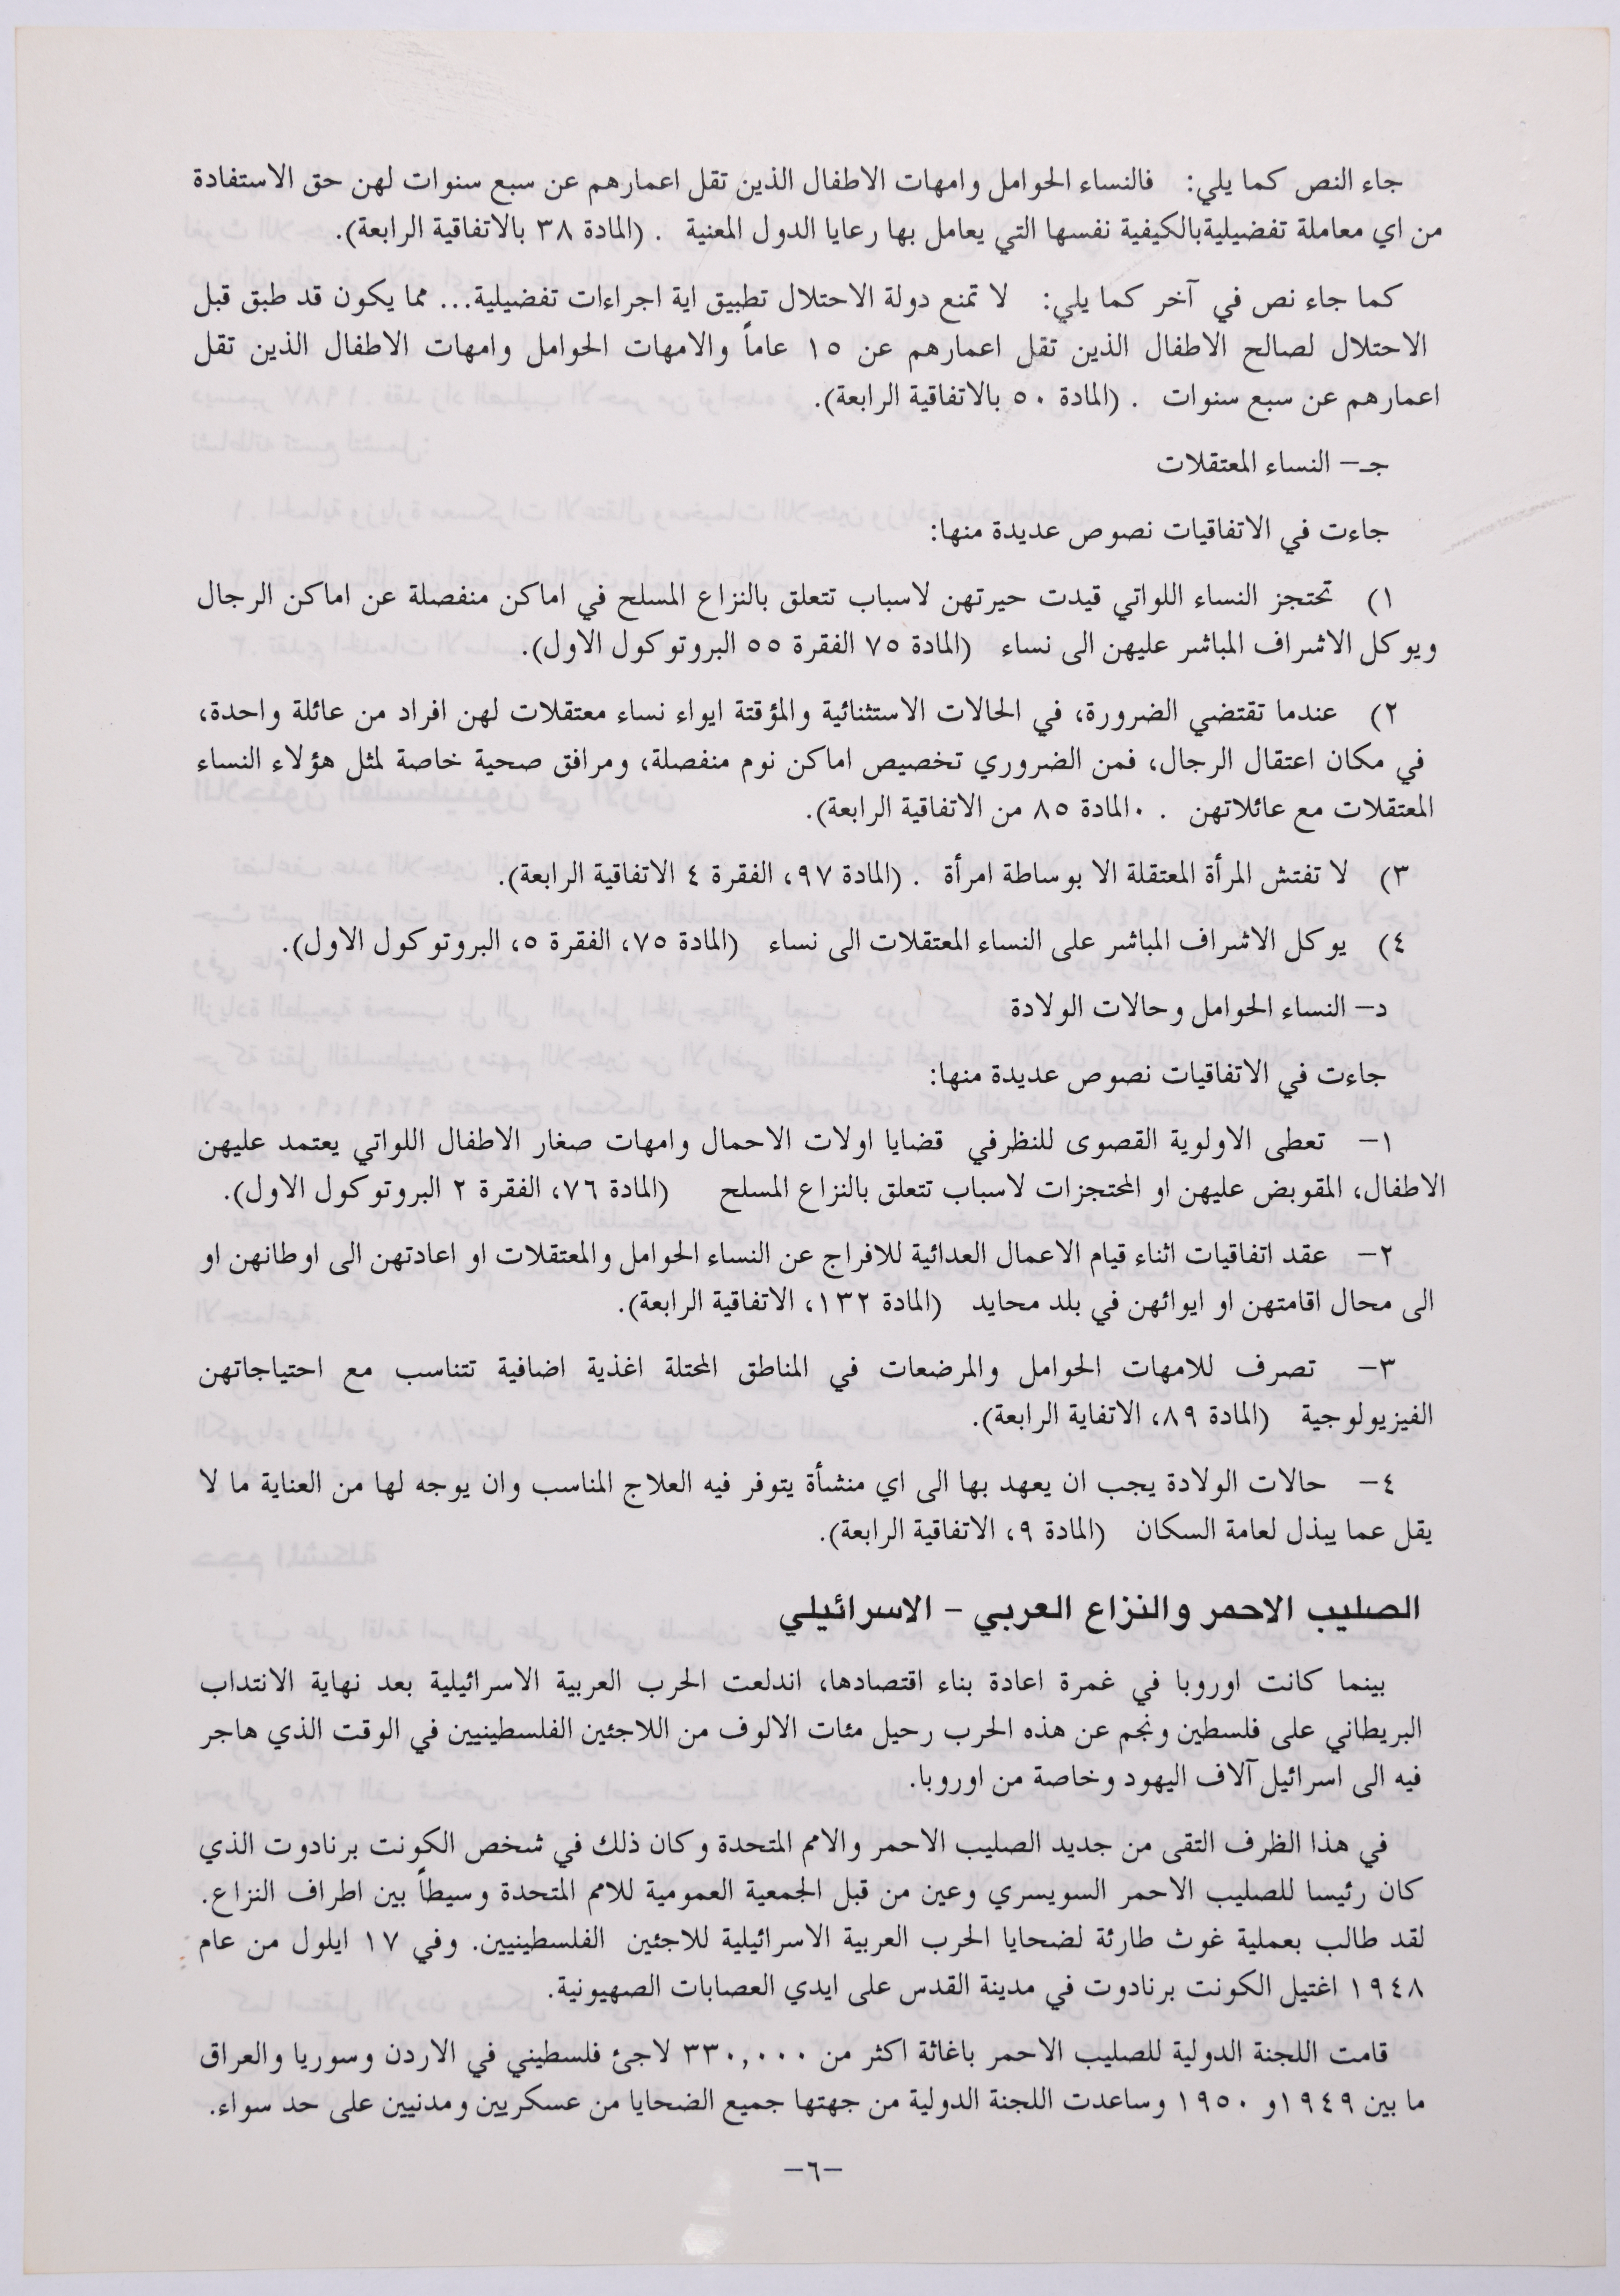 جاء النص كما يلي: فالنساء الحوامل وامهات الاطفال الذين تقل اعمارهم عن سبع سنوات لهن حق الاستفادة
من اي معاملة تفضيليةبالكيفية نفسها التي يعامل بها رعايا الدول المعنية . (المادة ٣٨ بالاتفاقية الرابعة).
كما جاء نص في آخر كما يلي: لا تمنع دولة الاحتلال تطبيق اية اجراءات تفضيلية... مما يكون قد طبق قبل
الاحتلال لصالح الاطفال الذين تقل اعمارهم عن ١٥ عاماً والامهات الحوامل وامهات الاطفال الذين تقل
اعمارهم عن سبع سنوات . (المادة ٥٠ بالاتفاقية الرابعة).
جـ– النساء المعتقلات
جاءت في الاتفاقيات نصوص عديدة منها:
١) تحتجز النساء اللواتي قيدت حيرتهن لاسباب تتعلق بالنزاع المسلح في اماكن منفصلة عن اماكن الرجال
ويوكل الاشراف المباشر عليهن الى نساء (المادة ٧٥ الفقرة ٥٥ البروتوكول الاول).
٢) عندما تقتضي الضرورة، في الحالات الاستثنائية والمؤقتة ايواء نساء معتقلات لهن افراد من عائلة واحدة،
في مكان اعتقال الرجال، فمن الضروري تخصيص اماكن نوم منفصلة، ومرافق صحية خاصة لمثل هؤلاء النساء
المعتقلات مع عائلاتهن . ٠المادة ٨٥ من الاتفاقية الرابعة).
٣) لا تفتش المرأة المعتقلة الا بوساطة امرأة . (المادة ٩٧، الفقرة ٤ الاتفاقية الرابعة).
٤) يوكل الاشراف المباشر على النساء المعتقلات الى نساء (المادة ٧٥، الفقرة ٥، البروتوكول الاول).
د– النساء الحوامل وحالات الولادة
جاءت في الاتفاقيات نصوص عديدة منها:
١– تعطى الاولوية القصوى للنظرفي قضايا اولات الاحمال وامهات صغار الاطفال اللواتي يعتمد عليهن
الاطفال، المقوبض عليهن او المحتجزات لاسباب تتعلق بالنزاع المسلح (المادة ٧٦، الفقرة ٢ البروتوكول الاول).
٢– عقد اتفاقيات اثناء قيام الاعمال العدائية للافراج عن النساء الحوامل والمعتقلات او اعادتهن الى اوطانهن او
الى محال اقامتهن او ايوائهن في بلد محايد (المادة ١٣٢، الاتفاقية الرابعة).
٣– تصرف للامهات الحوامل والمرضعات في المناطق المحتلة اغذية اضافية تتناسب مع احتياجاتهن
الفيزيولوجية (المادة ٨٩، الاتفاية الرابعة).
٤– حالات الولادة يجب ان يعهد بها الى اي منشأة يتوفر فيه العلاج المناسب وان يوجه لها من العناية ما لا
يقل عما يبذل لعامة السكان (المادة ٩، الاتفاقية الرابعة).
الصليب الاحمر والنزاع العربي – الاسرائيلي
بينما كانت اوروبا في غمرة اعادة بناء اقتصادها، اندلعت الحرب العربية الاسرائيلية بعد نهاية الانتداب
البريطاني على فلسطين ونجم عن هذه الحرب رحيل مئات الالوف من اللاجئين الفلسطينيين في الوقت الذي هاجر
فيه الى اسرائيل آلاف اليهود وخاصة من اوروبا.
في هذا الظرف التقى من جديد الصليب الاحمر والامم المتحدة وكان ذلك في شخص الكونت برنادوت الذي
كان رئيسا للصليب الاحمر السويسري وعين من قبل الجمعية العمومية للامم المتحدة وسيطاً بين اطراف النزاع.
لقد طالب بعملية غوث طارئة لضحايا الحرب العربية الاسرائيلية للاجئين الفلسطينيين. وفي ١٧ ايلول من عام
١٩٤٨ اغتيل الكونت برنادوت في مدينة القدس على ايدي العصابات الصهيونية.
قامت اللجنة الدولية للصليب الاحمر باغاثة اكثر من ٣٣٠,٠٠٠ لاجئ فلسطيني في الاردن وسوريا والعراق
ما بين ١٩٤٩و ١٩٥٠ وساعدت اللجنة الدولية من جهتها جميع الضحايا من عسكريين ومدنيين على حد سواء.
–٦–